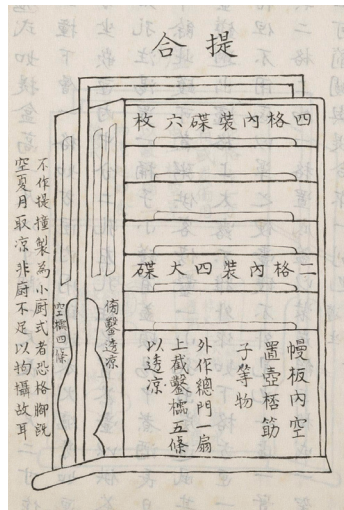 提合
四格內裝碟六枚
二格內裝四大碟
幔板內空
置壺桮筯
子等物
外作總門一扇
上截鑿橘五條
以透凉
傍鑿透凉
空橘四條
不作提撞製為小厨式者恐格脚脫
空夏月取凉非厨不足以均攝故耳